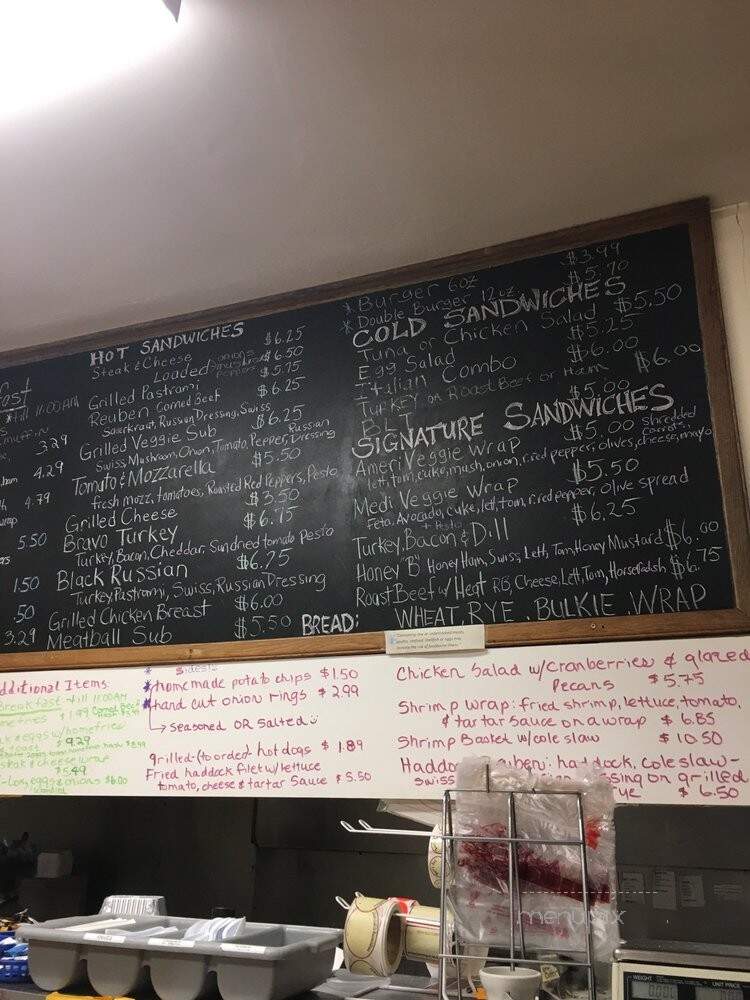 HOT SANDWICHES
Steak & Cheese $6.25
Loaded onions mushrooms peppers $6.50
Grilled Pastrami $5.75
Reuben Corned Beef $6.25
Sauerkraut, Russian Dressing, Swiss
Grilled Veggie Sub $6.25
Swiss, Mushroom, Onion, Tomato, Pepper, Russian Dressing
Tomato & Mozzarella $5.50
fresh mozz, tomatoes, Roasted Red Peppers, Pesto
Grilled Cheese $3.50
Bravo Turkey $6.75
Turkey, Bacon, Cheddar, Sundried tomato Pesto
Black Russian $6.75
Turkey, Pastrami, Swiss, Russian Dressing
Grilled Chicken Breast $6.00
Meatball Sub $5.50
11:00 AM
3.29
4.29
4.79
5.50
1.50
.50
3.29
* Burger 6oz $3.99
* Double Burger 12oz $5.70
COLD SANDWICHES
Tuna or Chicken Salad $5.50
Egg Salad $5.25
Italian Combo $6.00
Turkey or Roast Beef or Ham $6.00
BLT $5.00
SIGNATURE SANDWICHES
Ameri Veggie Wrap $5.00
lett, tom, cuke, mush, onion, r.red pepper, olives, cheese, mayo shredded carrots,
Medi Veggie Wrap $5.50
Feta, Avocado, cuke, lett, tom, r.red pepper, olive spread
Turkey, Bacon & Dill $6.25
Honey "B" Honey Ham, Swiss, Lett, Tom, Honey Mustard $6.00
Roast Beef w/ Heat RB, Cheese, Lett, Tom, Horseradish $6.75
BREAD: WHEAT, RYE, BULKIE, WRAP
dditional Items:
Breakfast - till 11:00AM
$1.99
$9.29
$5.49
$6.00
* sides:
* homemade potato chips $1.50
* hand cut onion rings $2.99
→ seasoned OR salted
grilled-(to order) hot dogs $1.89
Fried haddock filet w/lettuce
tomato, cheese & tartar sauce $5.50
Chicken Salad w/cranberries & glazed
pecans $5.75
Shrimp Wrap: fried shrimp, lettuce, tomato,
& tartar sauce on a wrap $6.85
Shrimp Basket w/cole slaw $10.50
Haddo uben: haddock, coleslaw-
swiss sing on grilled
rye $6.50
menupix
WEIGHT
UNIT PRICE